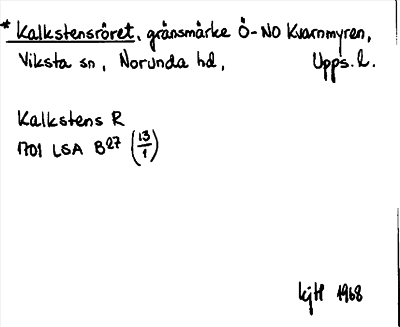 * Kalkstensröret, gränsmärke Ö-NO Kvarnmyren,
Viksta sn, Norunda hd, Upps. l.
Kalkstens R
1701 LSA B27 (13/1)
kjH 1968